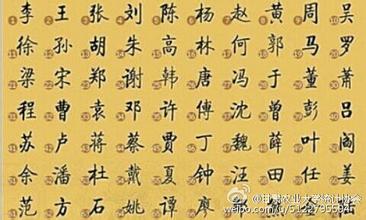 李 王 张 刘 陈 杨 赵 黄 周 吴
徐 孙 胡 朱 高 林 何 郭 马 罗
梁 宋 郑 谢 韩 唐 冯 于 董 萧
程 曹 袁 邓 许 傅 沈 曾 彭 吕
苏 卢 蒋 蔡 贾 丁 魏 薛 叶 阎
余 潘 杜 戴 夏 钟 汪 田 任 姜
范 方 石 姚 谭 廖
weibo.com/u/5122795594